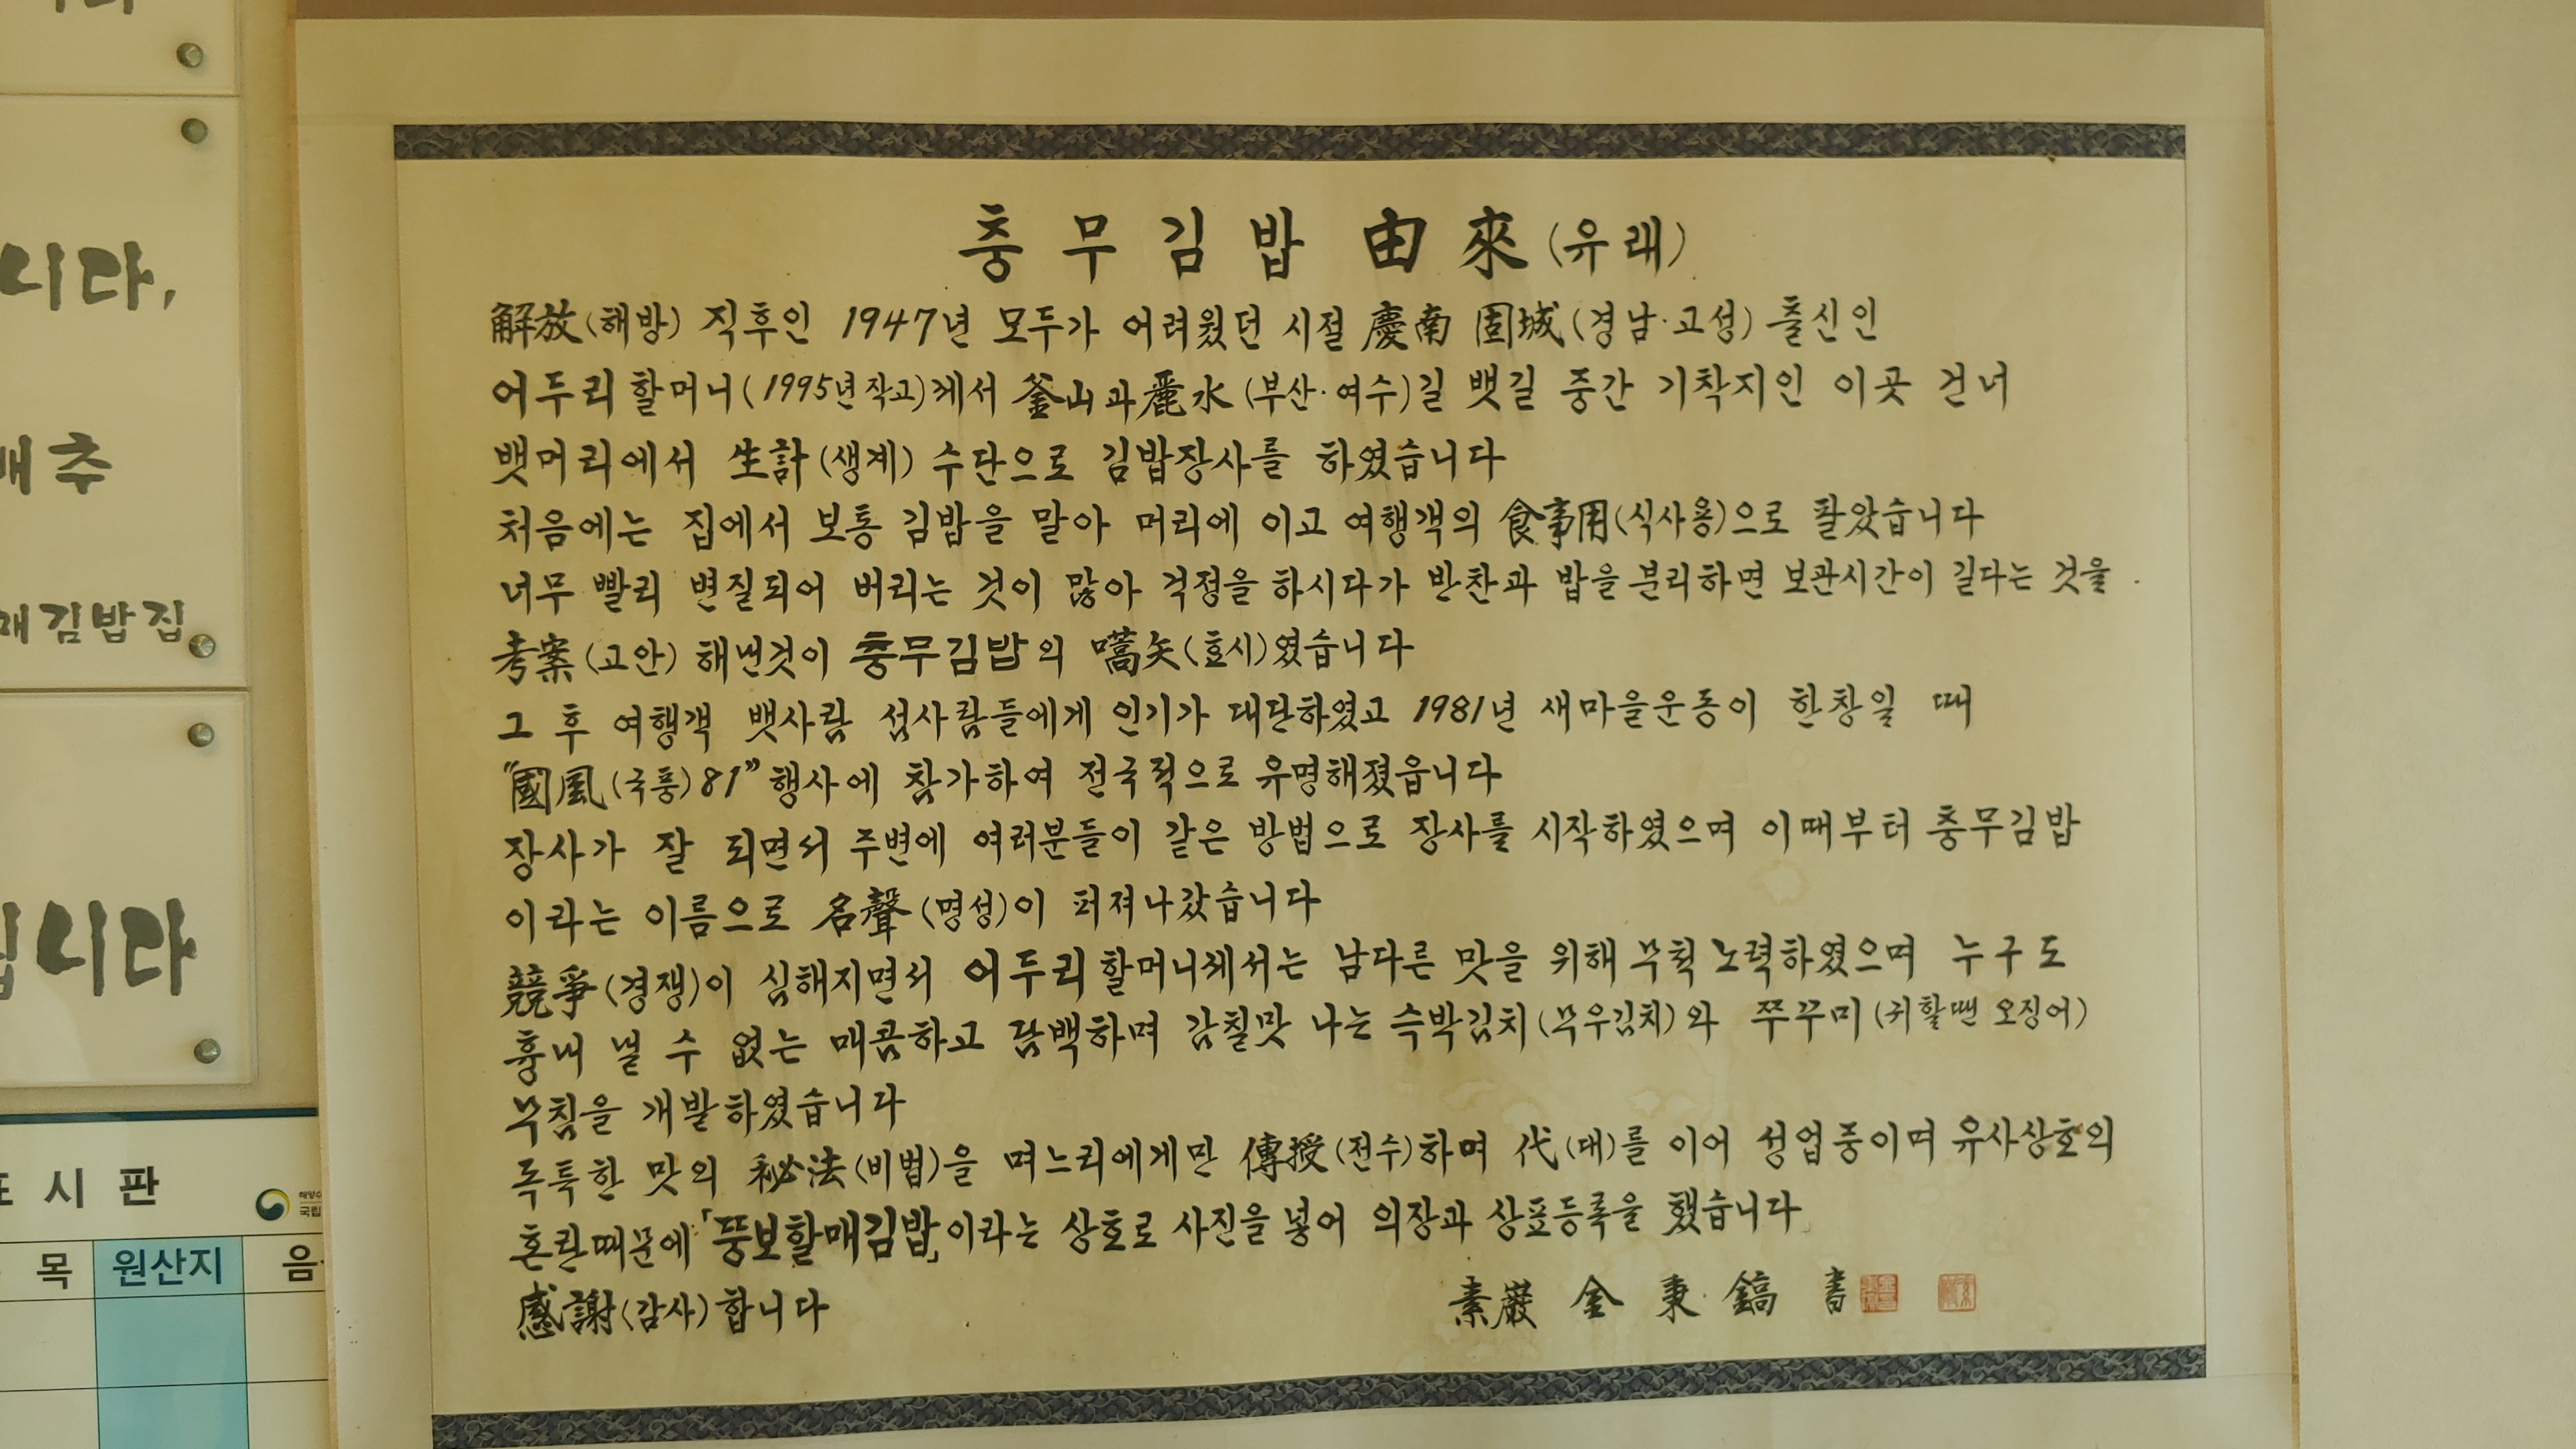 니다,
배추
매김밥집
입니다
표시판
목 원산지 음
충무김밥 由來(유래)
解放(해방) 직후인 1947년 모두가 어려웠던 시절 慶南 固城(경남·고성) 출신인
어두리 할머니(1995년작고)께서 釜山과 麗水(부산·여수)길 뱃길 중간 기착지인 이곳 건너
뱃머리에서 生計(생계) 수단으로 김밥장사를 하였습니다
처음에는 집에서 보통 김밥을 말아 머리에 이고 여행객의 食事用(식사용)으로 팔았습니다
너무 빨리 변질되어 버리는 것이 많아 걱정을 하시다가 반찬과 밥을 분리하면 보관시간이 길다는 것을
考案(고안) 해낸것이 충무김밥의 嚆矢(효시)였습니다
그 후 여행객 뱃사람 섬사람들에게 인기가 대단하였고 1981년 새마을운동이 한창일 때
"國風(국풍)81" 행사에 참가하여 전국적으로 유명해졌읍니다
장사가 잘 되면서 주변에 여러분들이 같은 방법으로 장사를 시작하였으며 이때부터 충무김밥
이라는 이름으로 名聲(명성)이 퍼져나갔습니다
競爭(경쟁)이 심해지면서 어두리 할머니께서는 남다른 맛을 위해 무척 노력하였으며 누구도
흉내 낼 수 없는 매콤하고 담백하며 감칠맛 나는 슥박김치(무우김치)와 쭈꾸미(귀할땐 오징어)
무침을 개발하였습니다
독특한 맛의 秘法(비법)을 며느리에게만 傳授(전수)하며 代(대)를 이어 성업중이며 유사상호의
혼란때문에 「뚱보할매김밥」이라는 상호로 사진을 넣어 의장과 상표등록을 했습니다
感謝(감사)합니다
素巖 金 秉 鎬 書